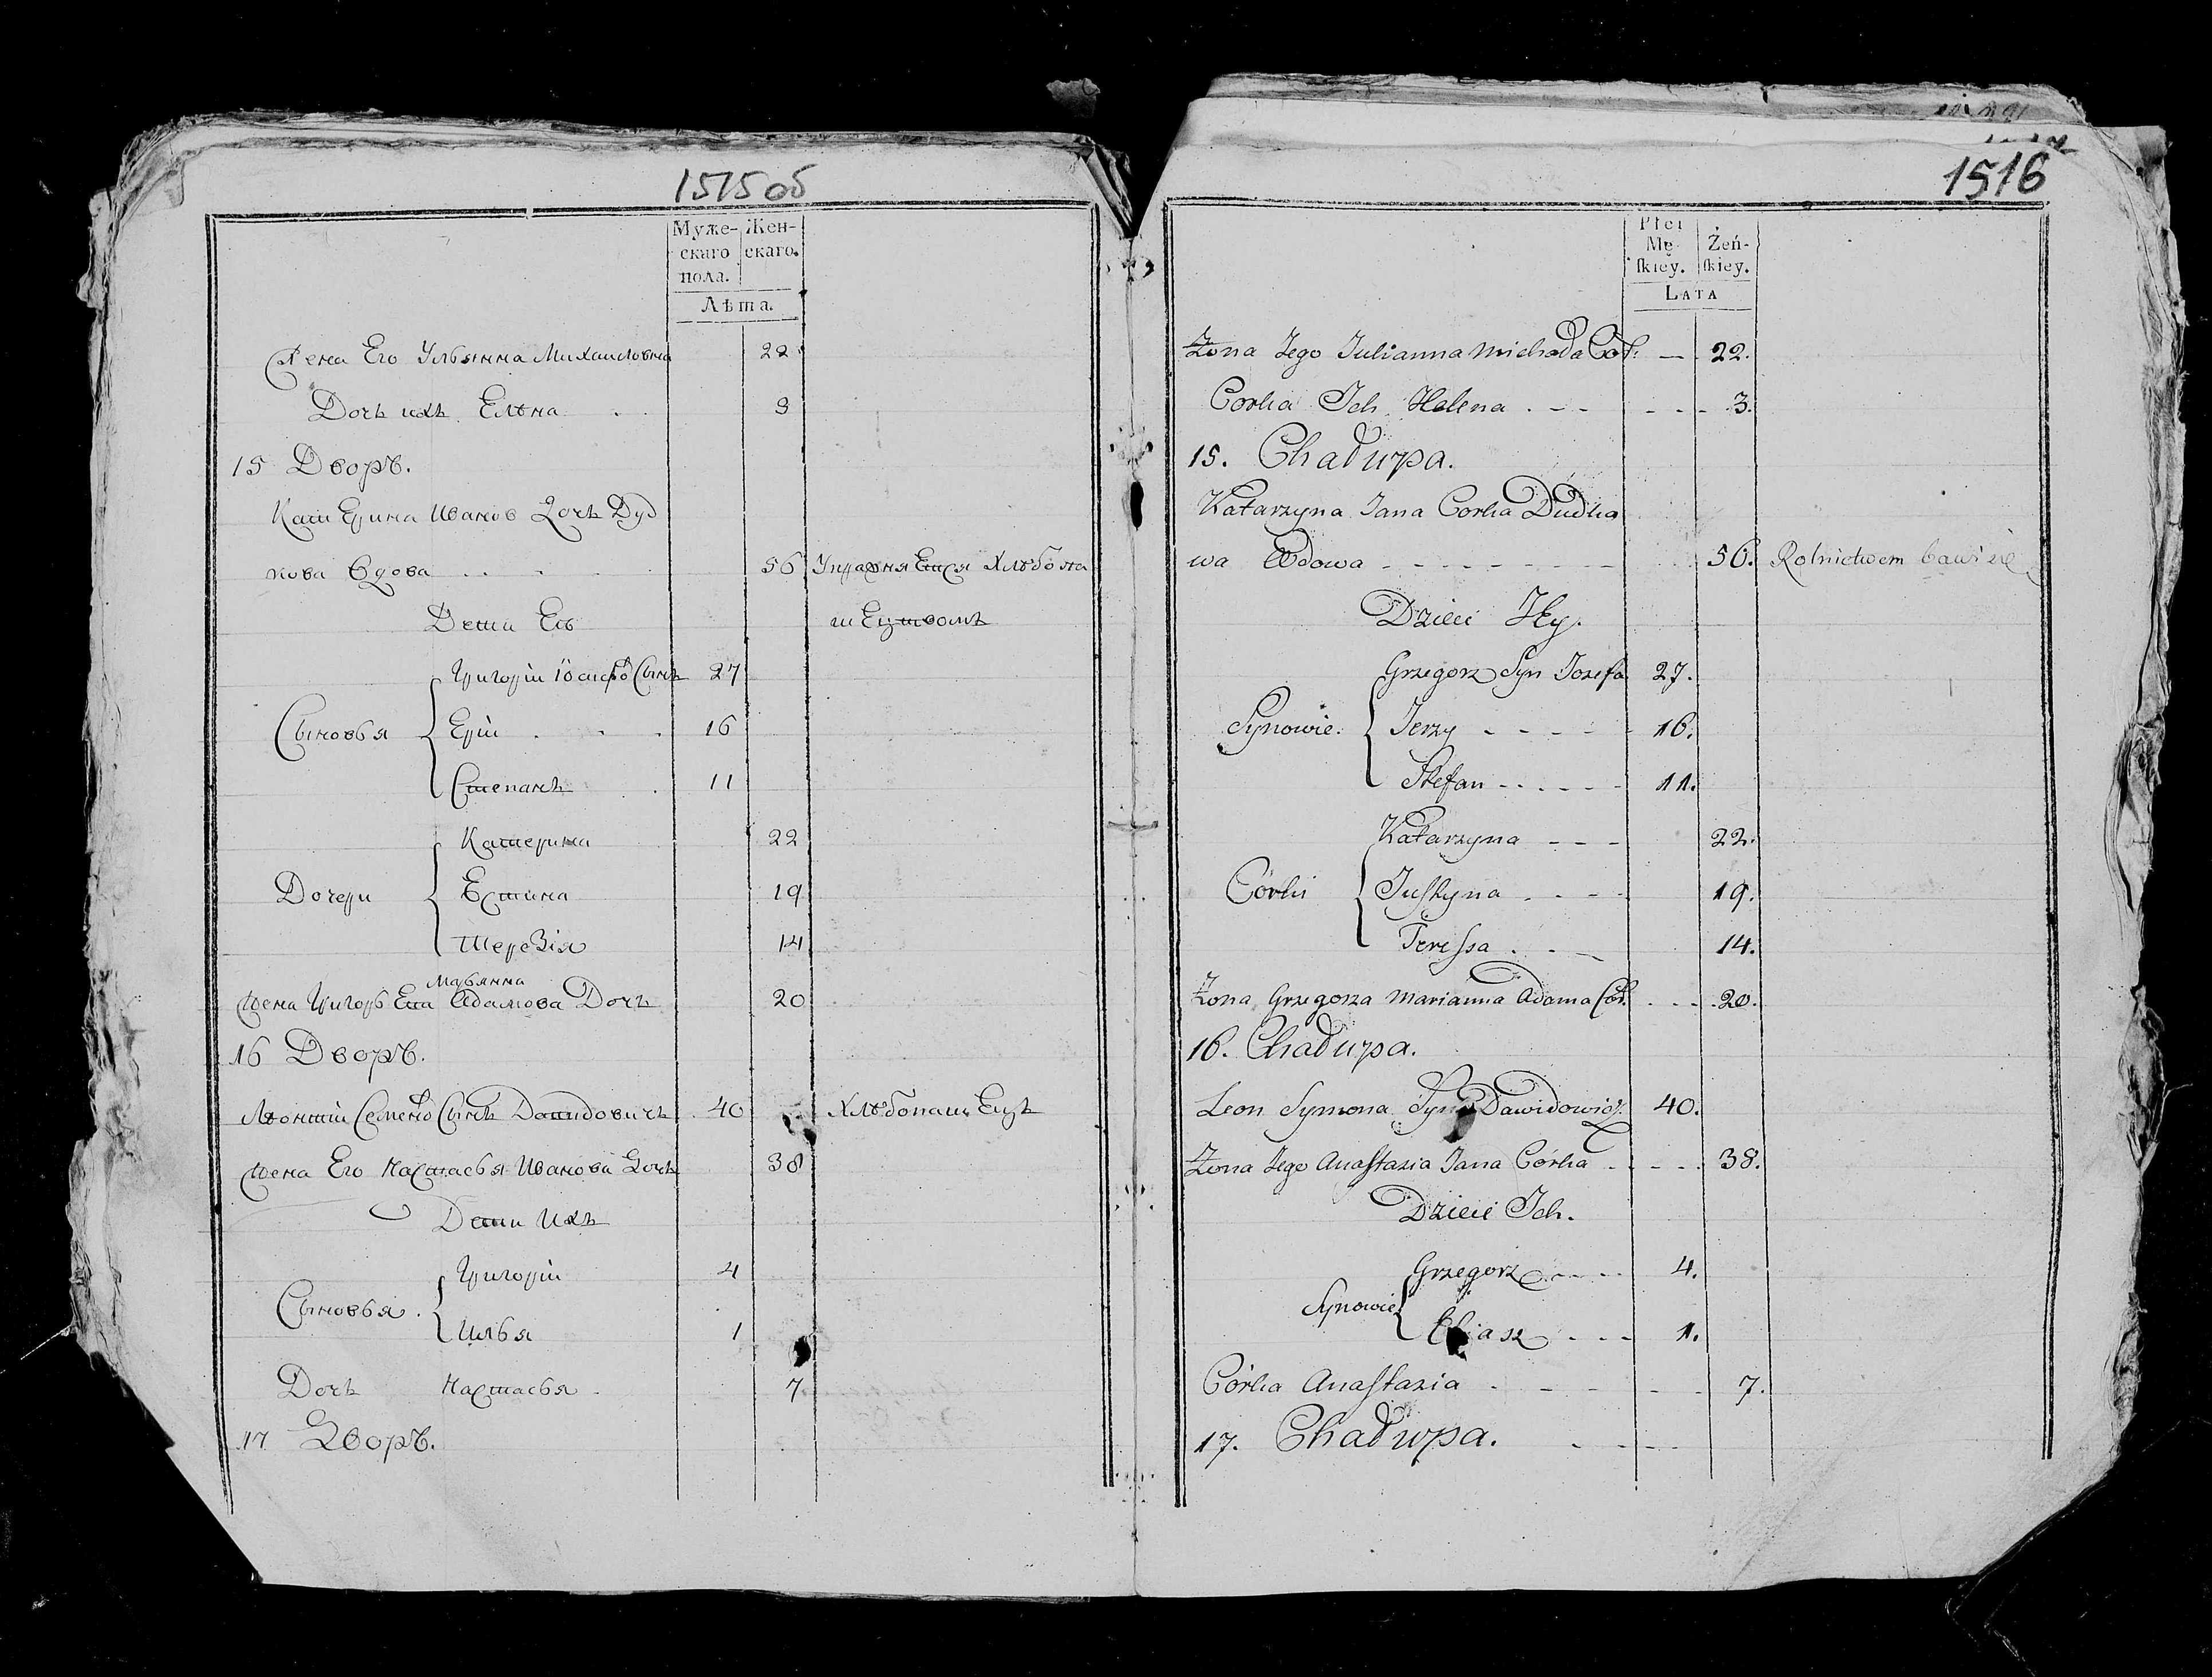 1515 об
Муже- Жен-
скаго скаго.
пола.
Лѣта.
Жена Его Ульянна Михаиловна 22
Дочь ихъ Елѣна . . 3
15 Дворъ.
Катерина Иванов Дочь Дуд
кова Вдова . . . . 56 Упражняется Хлѣбопа
шеством
Дѣти Ее
Григорій Іосифо Сынъ 27
Сыновья Ерій . . . 16
Степанъ . 11
Катерина 22
Дочери Естина 19
Терезія 14
Марьянна
Жена Григорьета Адамова Дочь 20
16 Дворъ.
Леонтій Семено Сынъ Давидовичъ 40 Хлѣбопашецъ
Жена Его Настасья Иванова Дочь 38
Дѣти Ихъ
Григорій 4
Сыновья.
Илья 1
Дочь Настасья . 7
17 Дворъ.
1516
Płci
Mę- Żeń-
ſkiey. ſkiey.
LATA
Żona Jego Julianna Michała Cór: — 22.
Corka Ich Helena . - - - - - 3.
15. Chałupa.
Katarzyna Jana Corka Dudko
wa Wdowa - - - - - - - - - 56. Rolnictwem bawi się
Dzieci Jey.
Grzegorz Syn Jozefa 27.
Synowie. Jerzy - - - - - 16.
Stefan - - - - - - 11.
Katarzyna - - - 22.
Córki Juſtyna . - - - 19.
Tereſsa . . - 14.
Żona Grzegorza Marianna Adama Cór. - - - 20.
16. Chałupa.
Leon Symona Syn Dawidowicz 40.
Żona Jego Anaſtazia Jana Córka . - - - . 38.
Dzieci Ich.
Grzegorz - - - - 4.
Synowie
Eliasz - - - 1.
Córka Anaſtazia . - - - - . 7.
17. Chałupa. . - - -